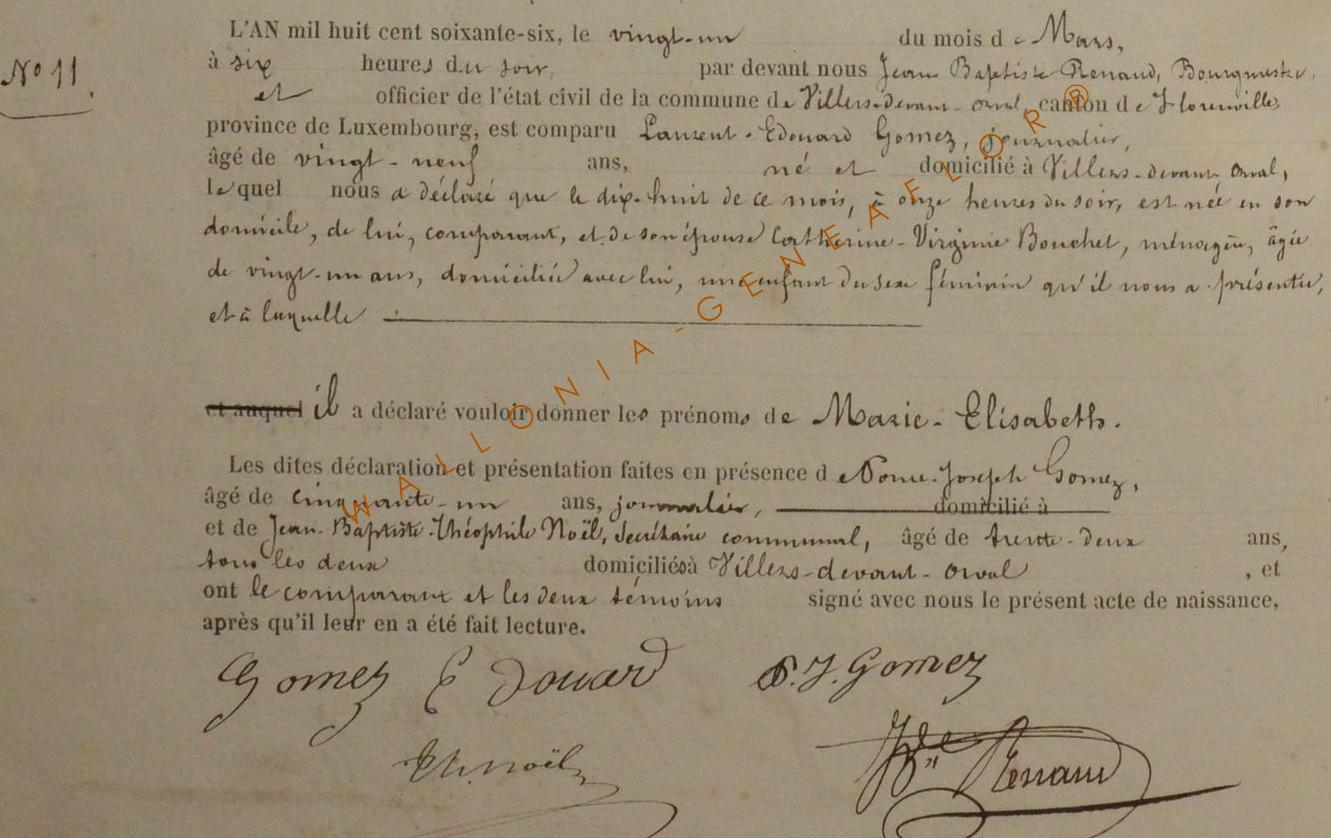 N° 11.
L'AN mil huit cent soixante-six, le vingt-un du mois de Mars,
à six heures du soir, par devant nous Jean Baptiste Renaud, Bourgmestre,
et officier de l'état civil de la commune de Villers-devant-orval, canton de Florenville,
province de Luxembourg, est comparu Laurent-Edouard Gomez, journalier,
âgé de vingt-neuf ans, né et domicilié à Villers-devant orval,
lequel nous a déclaré que le dix-huit de ce mois, à onze heures du soir, est née en son
domicile, de lui, comparant, et de son épouse Catherine-Virginie Bouchet, ménagère, âgée
de vingt-un ans, domiciliée avec lui, un enfant du sexe féminin qu'il nous a présentée,
et à laquelle
et auquel il a déclaré vouloir donner les prénoms de Marie-Elisabeth.
Les dites déclaration et présentation faites en présence de Joseph Gomez,
âgé de cinquante-un ans, journalier, domicilié à
et de Jean-Baptiste-Théophile Noël, Secrétaire communal, âgé de trente-deux ans,
tous les deux domiciliés à Villers-devant-orval, et
ont le comparant et les deux témoins signé avec nous le présent acte de naissance,
après qu'il leur en a été fait lecture.
Gomez Edouard P. J. Gomez
Th. Noël Renaud
WALLONIA-GENEAELOR®